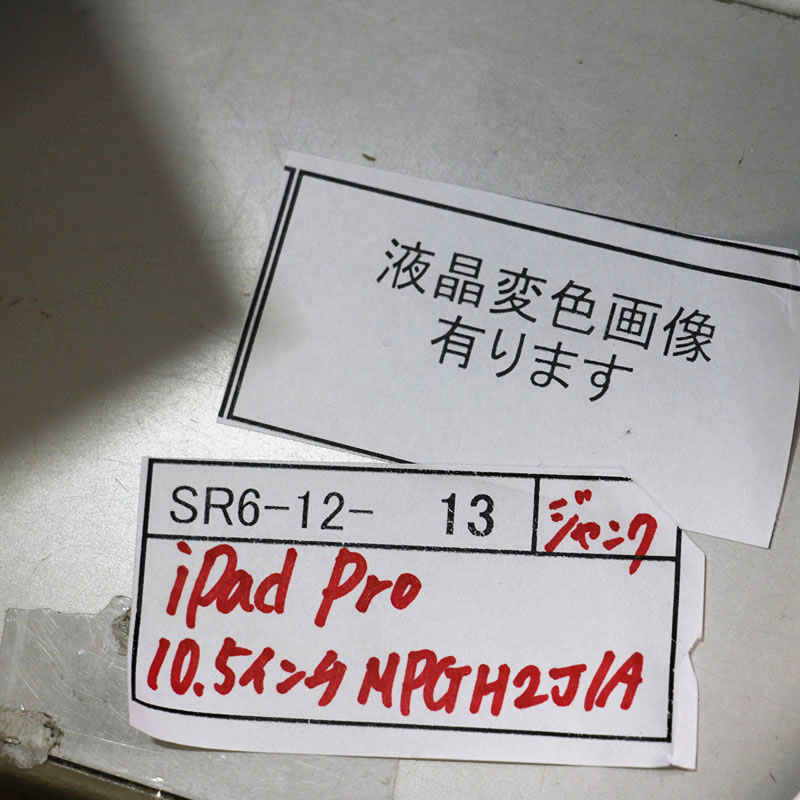 液晶変色画像
有ります
SR6-12- 13 ジャンク
iPad Pro
10.5インチ MPGH2J/A